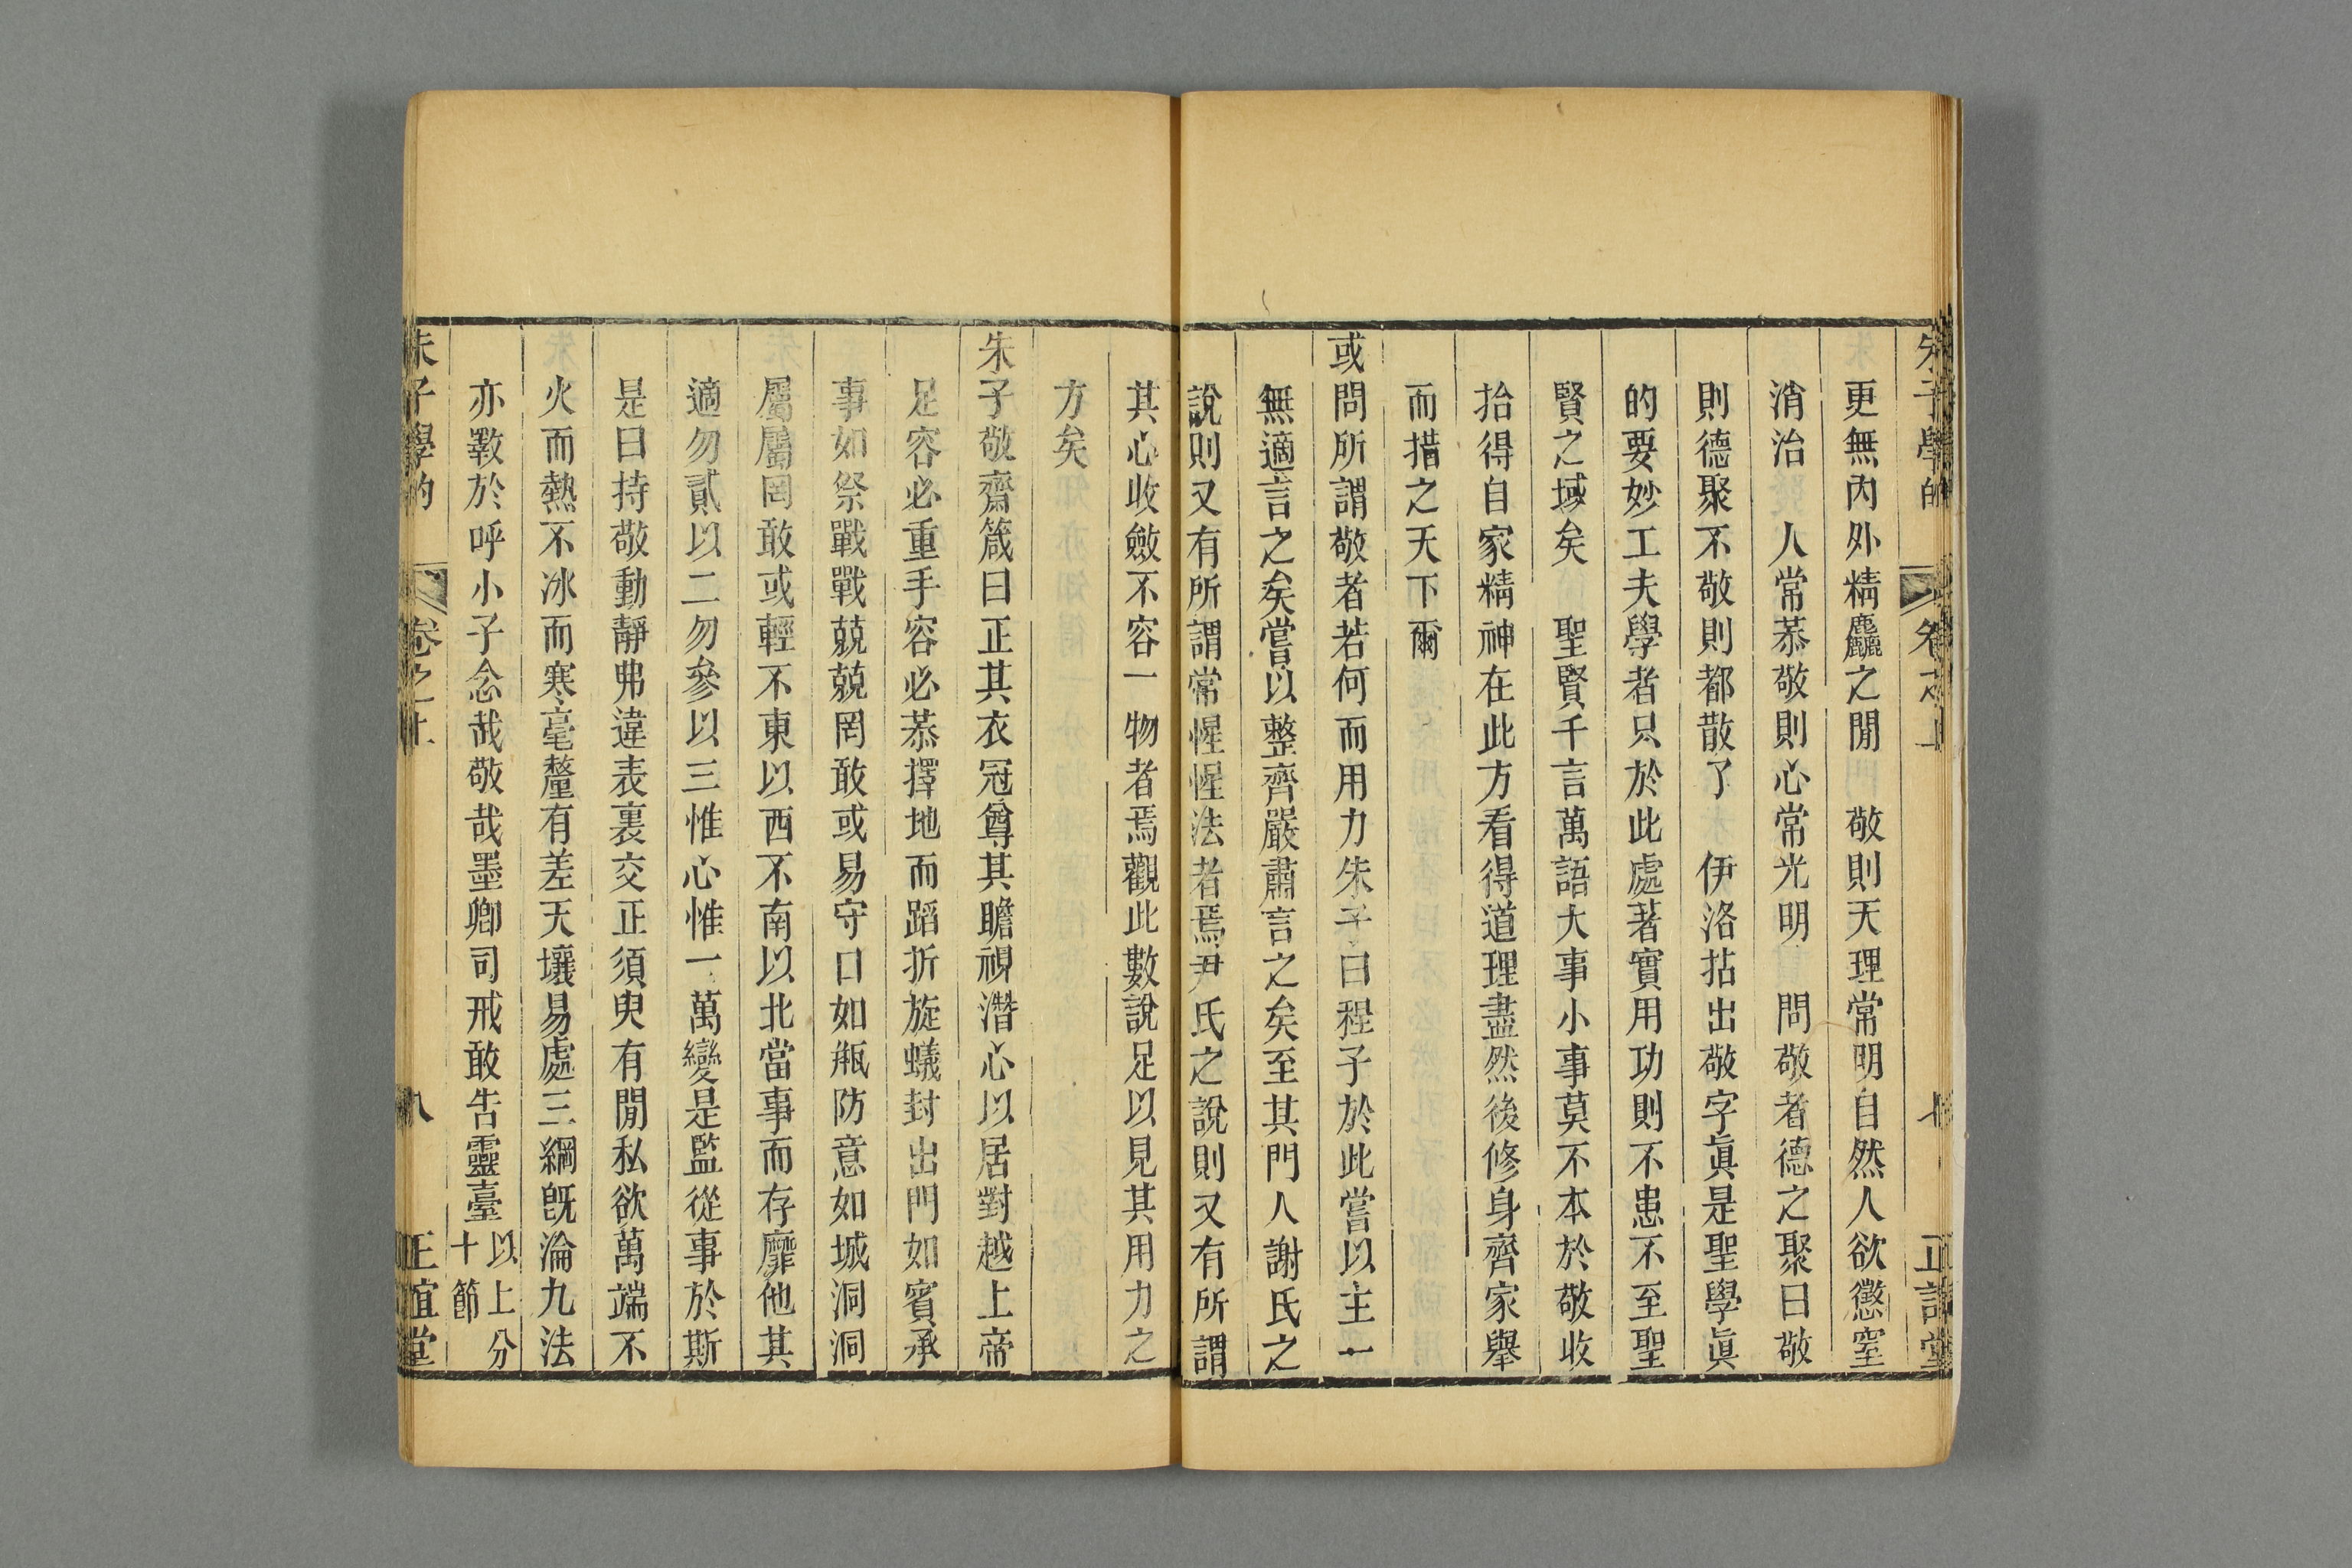 朱子學的 卷之上 七 正誼堂
更無內外精麤之閒 敬則天理常明自然人欲懲窒
消治 人常恭敬則心常光明 問敬者德之聚曰敬
則德聚不敬則都散了 伊洛拈出敬字眞是聖學眞
的要妙工夫學者只於此處著實用功則不患不至聖
賢之域矣 聖賢千言萬語大事小事莫不本於敬收
拾得自家精神在此方看得道理盡然後修身齊家舉
而措之天下爾
或問所謂敬者若何而用力朱子曰程子於此嘗以主一
無適言之矣嘗以整齊嚴肅言之矣至其門人謝氏之
說則又有所謂常惺惺法者焉尹氏之說則又有所謂
其心收斂不容一物者焉觀此數說足以見其用力之
方矣
朱子敬齋箴曰正其衣冠尊其瞻視潛心以居對越上帝
足容必重手容必恭擇地而蹈折旋蟻封出門如賓承
事如祭戰戰兢兢罔敢或易守口如瓶防意如城洞洞
屬屬罔敢或輕不東以西不南以北當事而存靡他其
適勿貳以二勿參以三惟心惟一萬變是監從事於斯
是曰持敬動靜弗違表裏交正須臾有閒私欲萬端不
火而熱不冰而寒毫釐有差天壤易處三綱旣淪九法
亦斁於呼小子念哉敬哉墨卿司戒敢告靈臺 以上分十節
朱子學的 卷之上 八 正誼堂